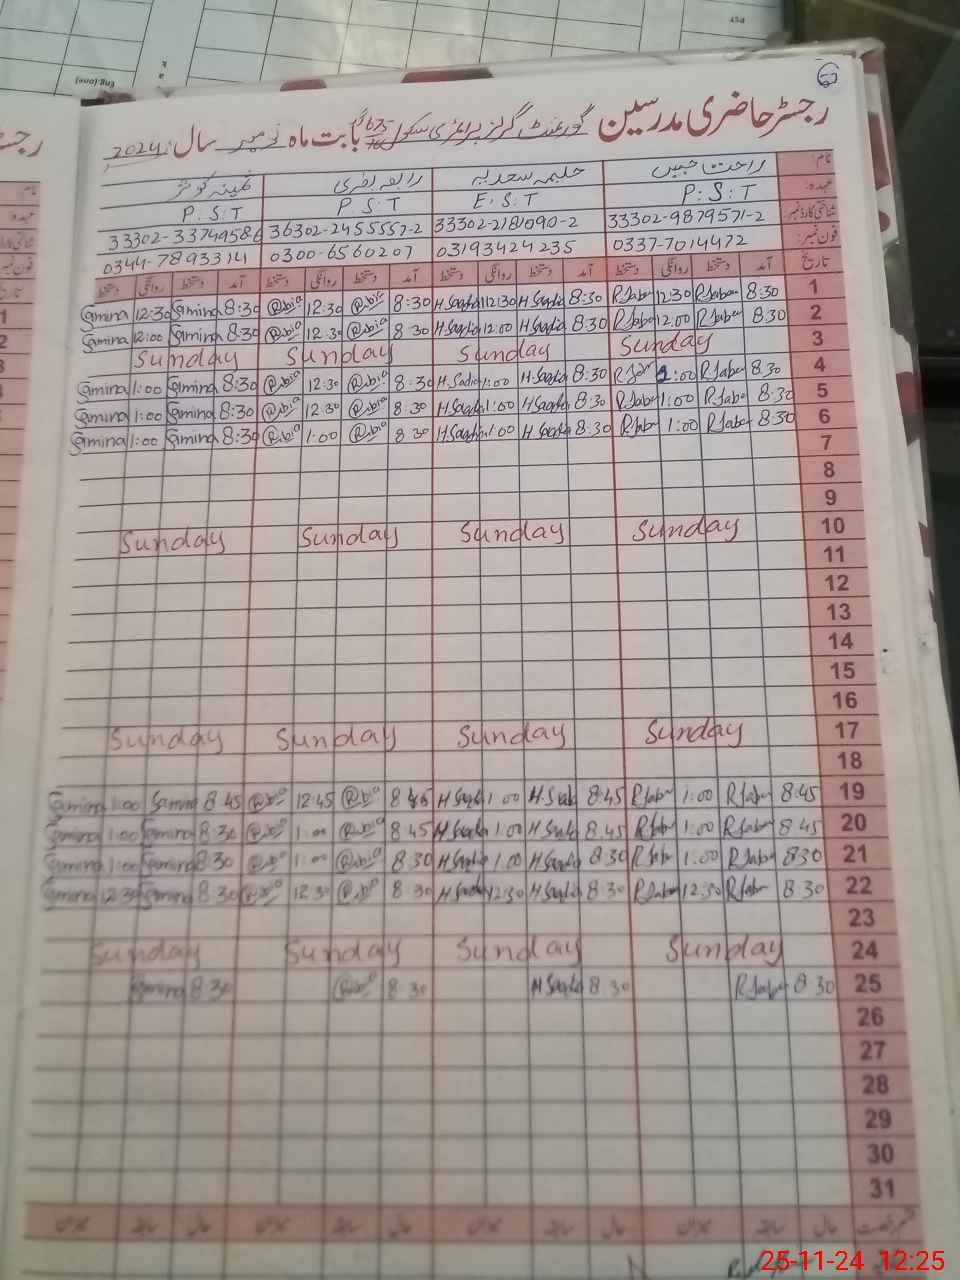 PST
Eng:(one)
رجسٹر حاضری مدرسین گورنمنٹ گرلز پرائمری سکول 675/16 گ ب بابت ماہ نومبر سال 2024
نام: راحت جبیں حلیمہ سعدیہ رابعہ بصری ثمینہ کوثر
عہدہ: P:S:T E:S:T P.S:T P.S:T
شناختی کارڈ نمبر 33302-9879571-2 33302-2181090-2 36302-2455557-2 33302-33749586
فون نمبر: 0337-7014472 03193424235 0300-6560207 0344-7893314
تاریخ آمد دستخط روانگی دستخط آمد دستخط روانگی دستخط آمد دستخط روانگی دستخط آمد دستخط روانگی دستخط
1 8:30 R.Jabn 12:30 R.Jabn 8:30 H.Sadia 12:30 H.Sadia 8:30 @bia 12:30 @bia 8:30 Samina 12:30 Samina
2 8:30 R.Jabn 12:00 R.Jabn 8:30 H.Sadia 12:00 H.Sadia 8:30 @bia 12:30 @bia 8:30 Samina 12:00 Samina
3 Sunday Sunday Sunday Sunday
4 8:30 R.Jabn 1:00 R.Jabn 8:30 H.Sadia 1:00 H.Sadia 8:30 @bia 12:30 @bia 8:30 Samina 1:00 Samina
5 8:30 R.Jabn 1:00 R.Jabn 8:30 H.Sadia 1:00 H.Sadia 8:30 @bia 12:30 @bia 8:30 Samina 1:00 Samina
6 8:30 R.Jabn 1:00 R.Jabn 8:30 H.Sadia 1:00 H.Sadia 8:30 @bia 1:00 @bia 8:30 Samina 1:00 Samina
7
8
9
10 Sunday Sunday Sunday Sunday
11
12
13
14
15
16
17 Sunday Sunday Sunday Sunday
18
19 8:45 R.Jabn 1:00 R.Jabn 8:45 H.Sadia 1:00 H.Sadia 8:45 @bia 12:45 @bia 8:45 Samina 1:00 Samina
20 8:45 R.Jabn 1:00 R.Jabn 8:45 H.Sadia 1:00 H.Sadia 8:45 @bia 1:00 @bia 8:30 Samina 1:00 Samina
21 8:30 R.Jabn 1:00 R.Jabn 8:30 H.Sadia 1:00 H.Sadia 8:30 @bia 1:00 @bia 8:30 Samina 1:00 Samina
22 8:30 R.Jabn 12:30 R.Jabn 8:30 H.Sadia 12:30 H.Sadia 8:30 @bia 12:30 @bia 8:30 Samina 12:30 Samina
23
24 Sunday Sunday Sunday Sunday
25 8:30 R.Jabn 8:30 H.Sadia 8:30 @bia 8:30 Samina
26
27
28
29
30
31
حال سابقہ میزان حال سابقہ میزان حال سابقہ میزان حال سابقہ میزان
25-11-24 12:25